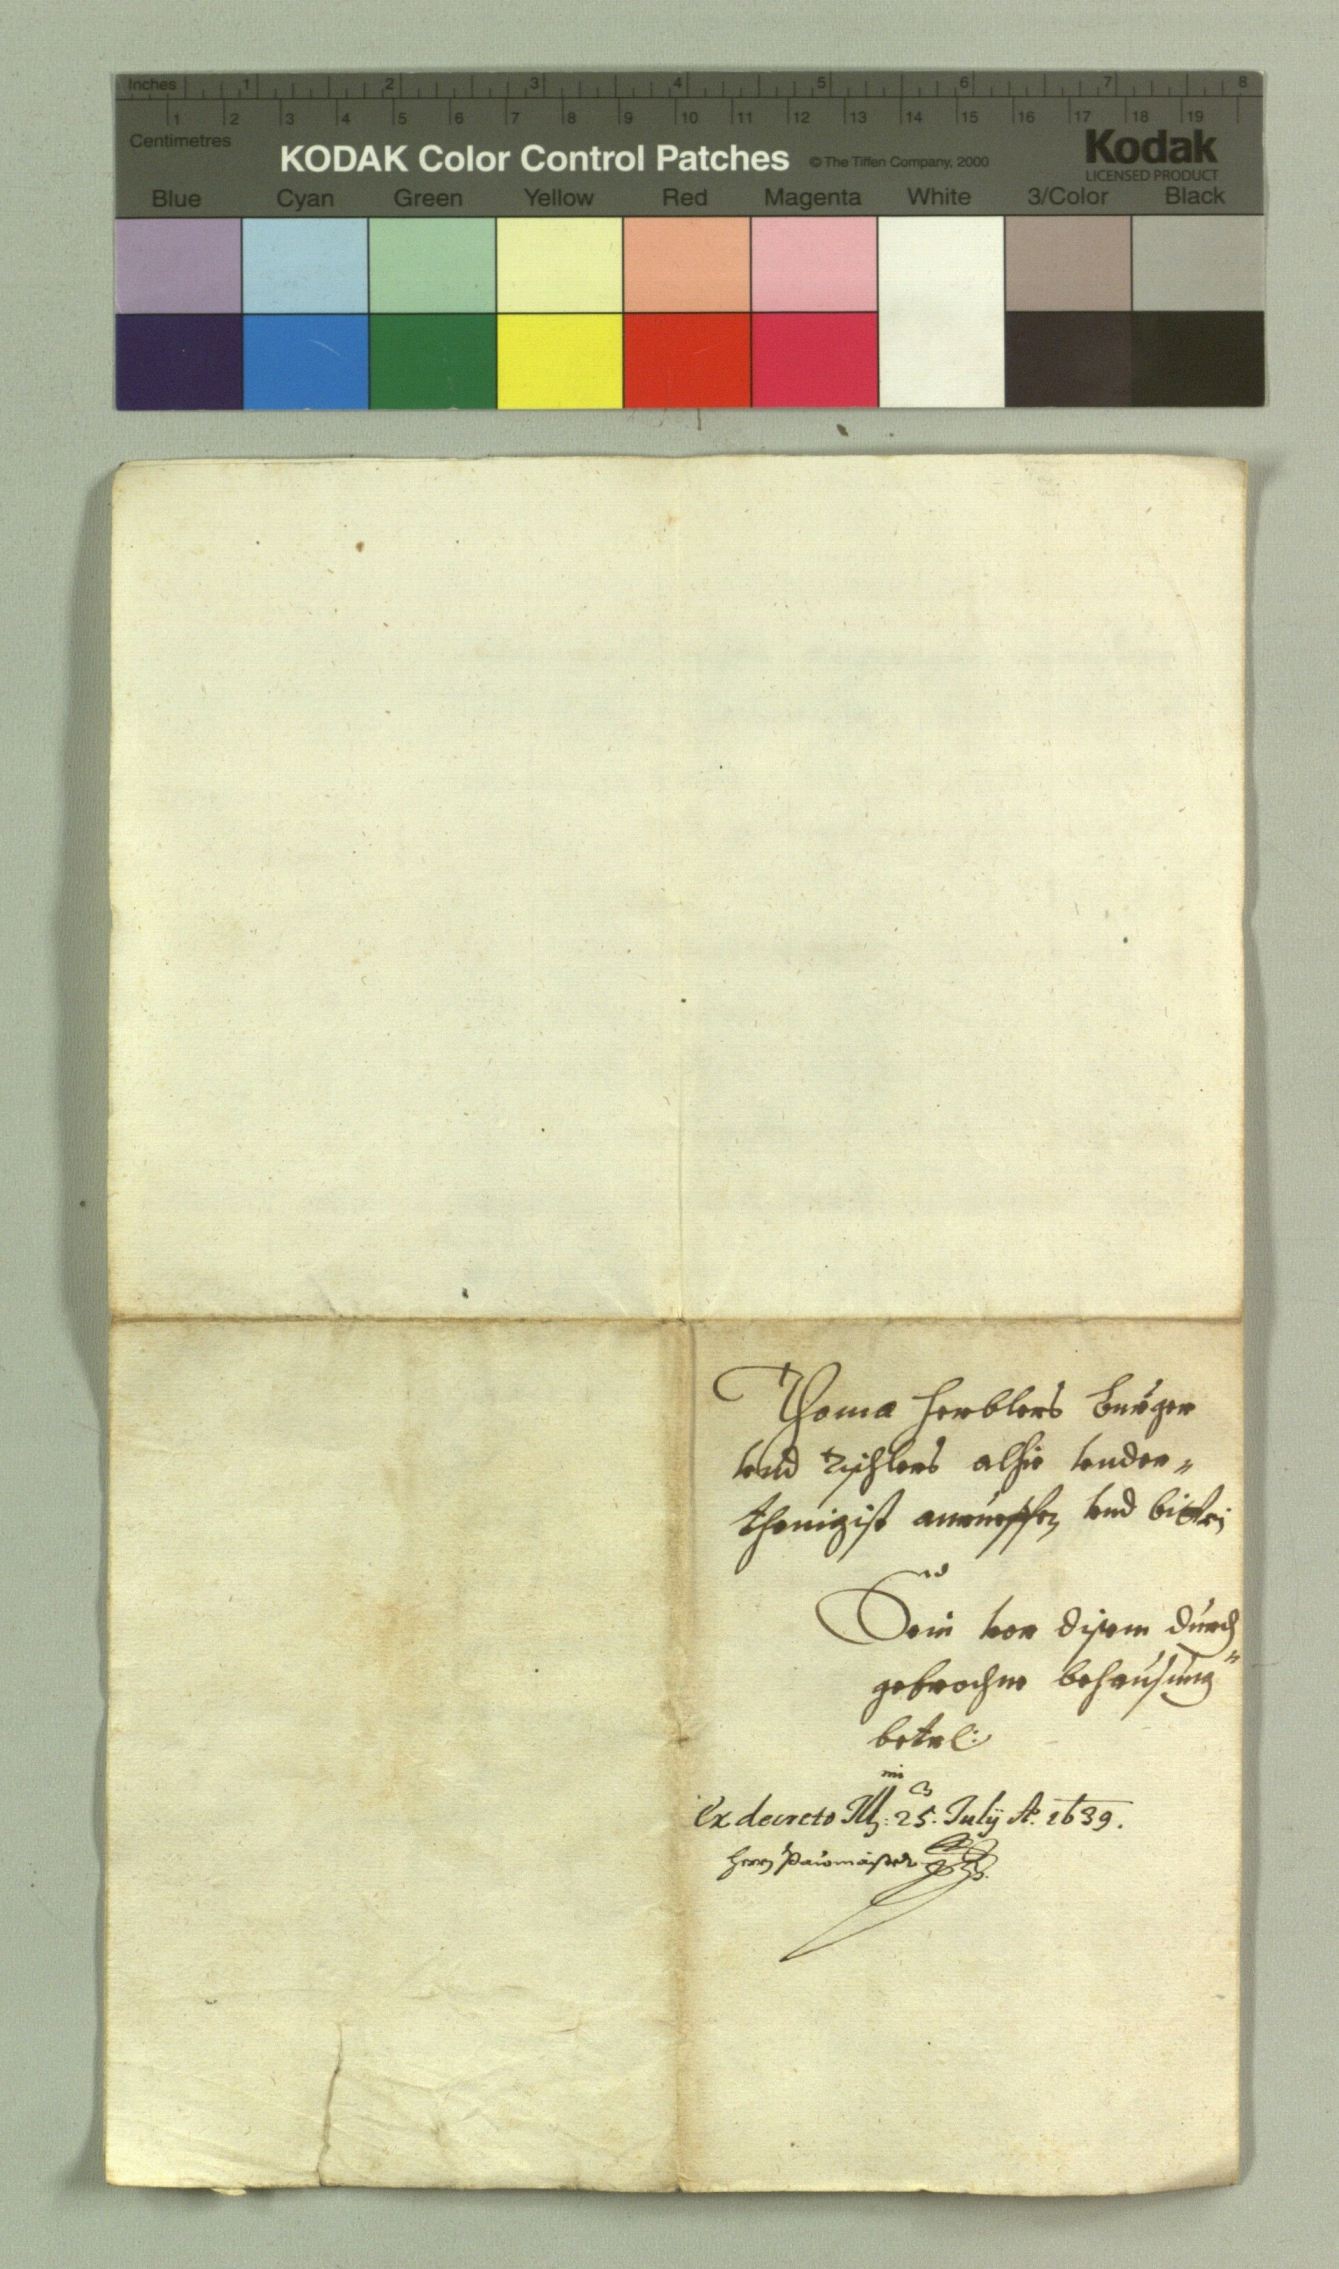 Inches 1 2 3 4 5 6 7 8
1 2 3 4 5 6 7 8 9 10 11 12 13 14 15 16 17 18 19
Centimetres
KODAK Color Control Patches © The Tiffen Company, 2000 Kodak
LICENSED PRODUCT
Blue Cyan Green Yellow Red Magenta White 3/Color Black
Thoma Herblers Burger
vnd Tischlers alhie vnder-
thenigist anrueffen vnd bitten
Sein vor disem durch-
gebrochne behausung
betrl:
Ex decreto 25. July A: 1639.
Herrn Paumaister